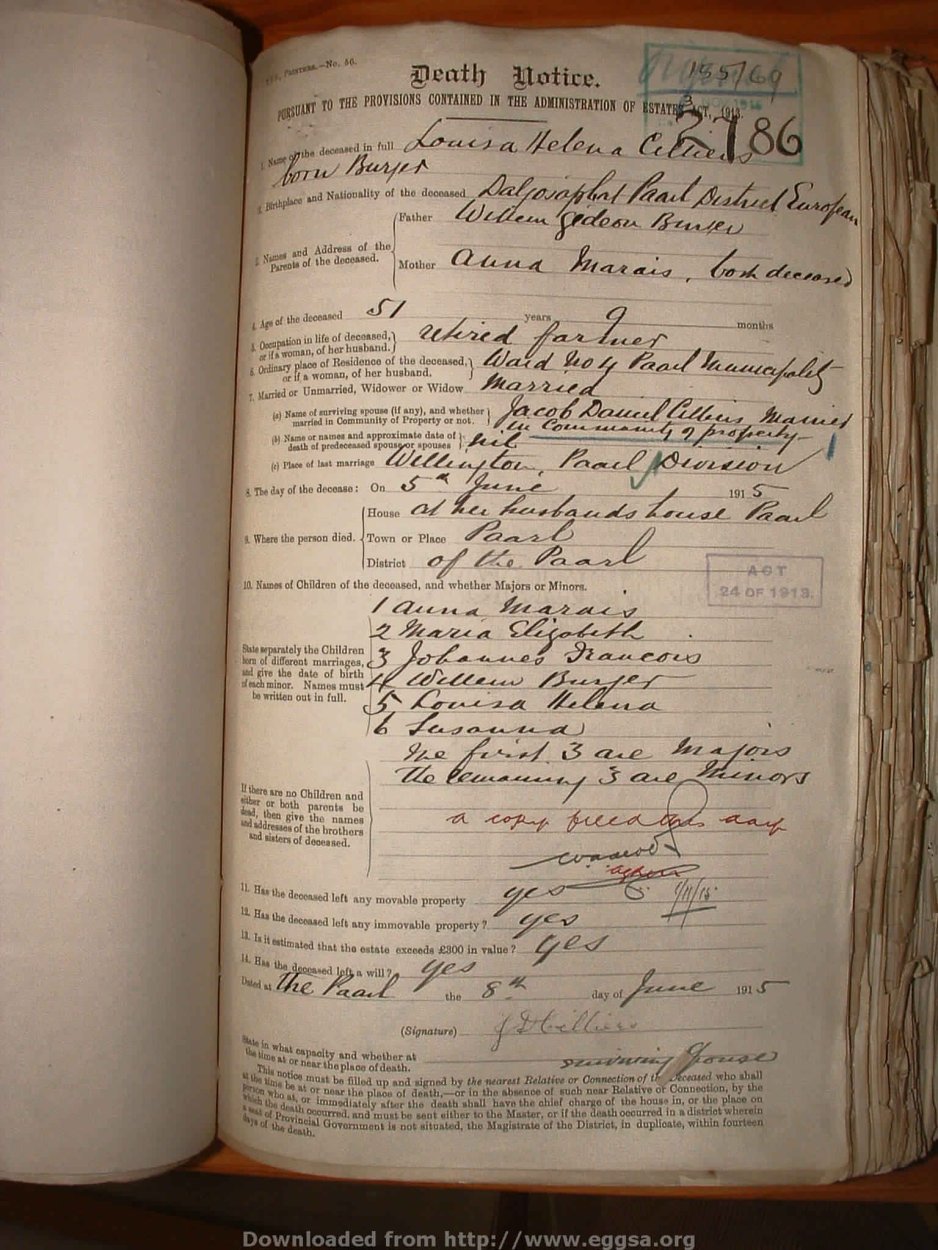 PRINTERS.—No. 56.
Death Notice.
155/69
PURSUANT TO THE PROVISIONS CONTAINED IN THE ADMINISTRATION OF ESTATES ACT, 1913.
2786
1. Name of the deceased in full Louisa Helena Cilliers
born Burger
2. Birthplace and Nationality of the deceased Daljosaphat Paarl District European
3. Names and Address of the Parents of the deceased.
Father Willem Gedeon Burger
Mother Anna Marais, both deceased
4. Age of the deceased 51 years 9 months
5. Occupation in life of deceased, or if a woman, of her husband. retired farmer
6. Ordinary place of Residence of the deceased, or if a woman, of her husband. Ward No 4 Paarl Municipality
7. Married or Unmarried, Widower or Widow Married
(a) Name of surviving spouse (if any), and whether married in Community of Property or not. Jacob Daniel Cilliers Married
in Community of property
(b) Name or names and approximate date of death of predeceased spouse or spouses nil
(c) Place of last marriage Wellington, Paarl Division
8. The day of the decease: On 5th June 1915
9. Where the person died.
House At her husbands house Paarl
Town or Place Paarl
District of the Paarl
ACT
24 OF 1913.
10. Names of Children of the deceased, and whether Majors or Minors.
State separately the Children born of different marriages, and give the date of birth of each minor. Names must be written out in full.
1 Anna Marais
2 Maria Elizabeth
3 Johannes Francois
4 Willem Burger
5 Louisa Helena
6 Susanna
The first 3 are Majors
the remaining 3 are Minors
If there are no Children and either or both parents be dead, then give the names and addresses of the brothers and sisters of deceased.
a copy filed this day
1/11/15
11. Has the deceased left any movable property yes
12. Has the deceased left any immovable property? yes
13. Is it estimated that the estate exceeds £300 in value? yes
14. Has the deceased left a will? yes
Dated at the Paarl the 8th day of June 1915
(Signature) J D Cilliers
State in what capacity and whether at the time at or near the place of death. surviving spouse
This notice must be filled up and signed by the nearest Relative or Connection of the deceased who shall
at the time be at or near the place of death,—or in the absence of such near Relative or Connection, by the
person who at, or immediately after the death shall have the chief charge of the house in, or the place on
which the death occurred, and must be sent either to the Master, or if the death occurred in a district wherein
a seat of Provincial Government is not situated, the Magistrate of the District, in duplicate, within fourteen
days of the death.
Downloaded from http://www.eggsa.org